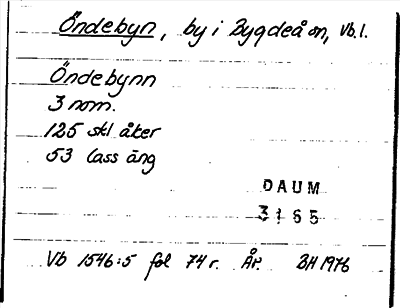 Öndebyn, by i Bygdeå sn, Vb.l.
Öndebynn
3 nom.
125 skl åker
53 lass äng
DAUM
3165
Vb 1546:5 fol 74 r. ÅP. BH 1976